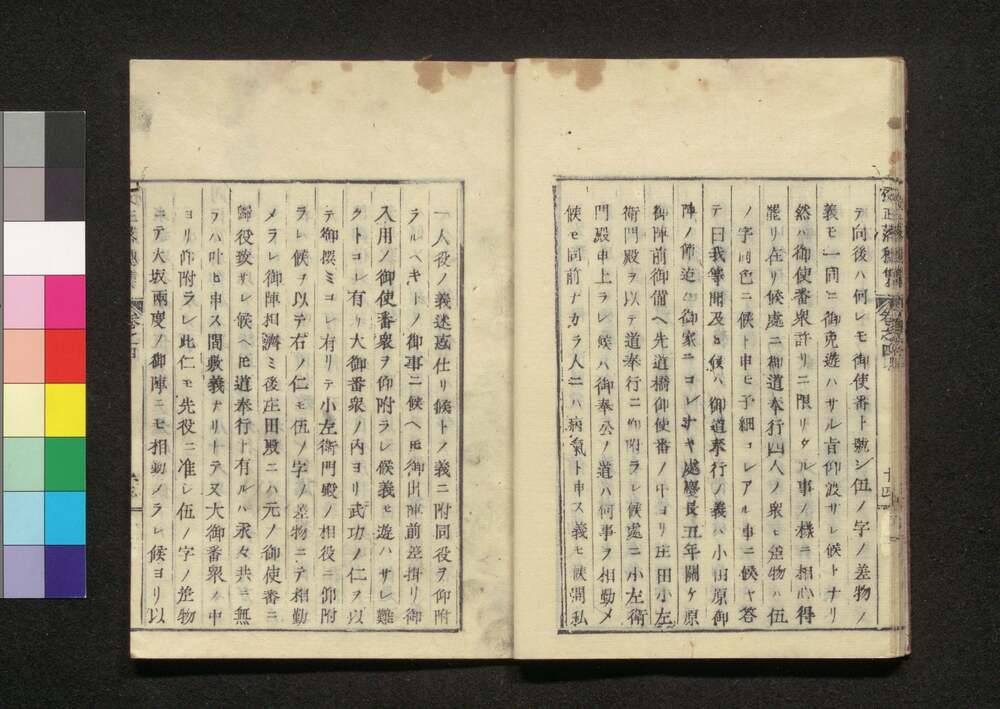 テ向後ハ何レモ御使番ト號シ伍ノ字ノ差物ノ
義モ一同ニ御免遊ハサル旨仰渡サレ候トナリ
然ハ御使番衆許リニ限リタル事ノ樣ニ相心得
罷リ在リ候處ニ御道奉行四人ノ衆モ差物ハ伍
ノ字同色ニ候ト申ヒ子細コレアル事ニ候ヤ答
テ曰我等聞及ヒ候ハ御道奉行ノ義ハ小田原御
陣ノ節迄ハ御家ニコレナキ處慶長五年關ケ原
御陣前御備ヘ先道橋御使番ノ中ヨリ庄田小左
衛門殿ヲ以テ道奉行ニ仰附ラレ候處ニ小左衛
門殿申上ラレ候ハ御奉公ノ道ハ何事ヲ相勤メ
候モ同前ナカラ人ニハ病氣ト申ス義モ候間私
一人役ノ義迷惑仕リ候トノ義ニ附同役ヲ仰附
ラルヘキトノ御事ニ候ヘモ御出陣前差掛リ御
入用ノ御使番衆ヲ仰附ラレ候義モ遊ハサレ難
クトコレ有リ大御番衆ノ内ヨリ武功ノ仁ヲ以
テ御撰ミコレ有リテ小左衛門殿ノ相役ニ仰附
ラレ候ヲ以テ右ノ仁モ伍ノ字ノ差物ニテ相勤
メラレ御陣相濟ミ後庄田殿ニハ元ノ御使番ニ
歸役致サレ候ヘモ道奉行ト有ルハ永々共ニ無
テハ叶ヒ申ス間敷義ナリトテ又大御番衆ノ中
ヨリ仰附ラレ此仁モ先役ニ准シ伍ノ字ノ差物
ニテ大坂兩度ノ御陣ニモ相勤メラレ候ヨリ以